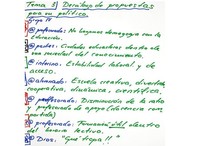 Tema 3) Decálogo de propuestas
para un político.
Grupo IV
@ profesorado: No hagamos demagogia con la
educación.
@ padres: Ciudades educadoras dentro de
una sociedad del conocimiento.
@ interino: Estabilidad laboral y de
acceso.
@ alumnado: Escuela creativa, divertida,
cooperativa, dinámica, científica.
@ profesorado: Disminución de la ratio
y profesorado de apoyo (docencia com-
partida)
@ profesorado: Formación del claustro
en horario lectivo.
@ Dios: "Qué tropa!!"